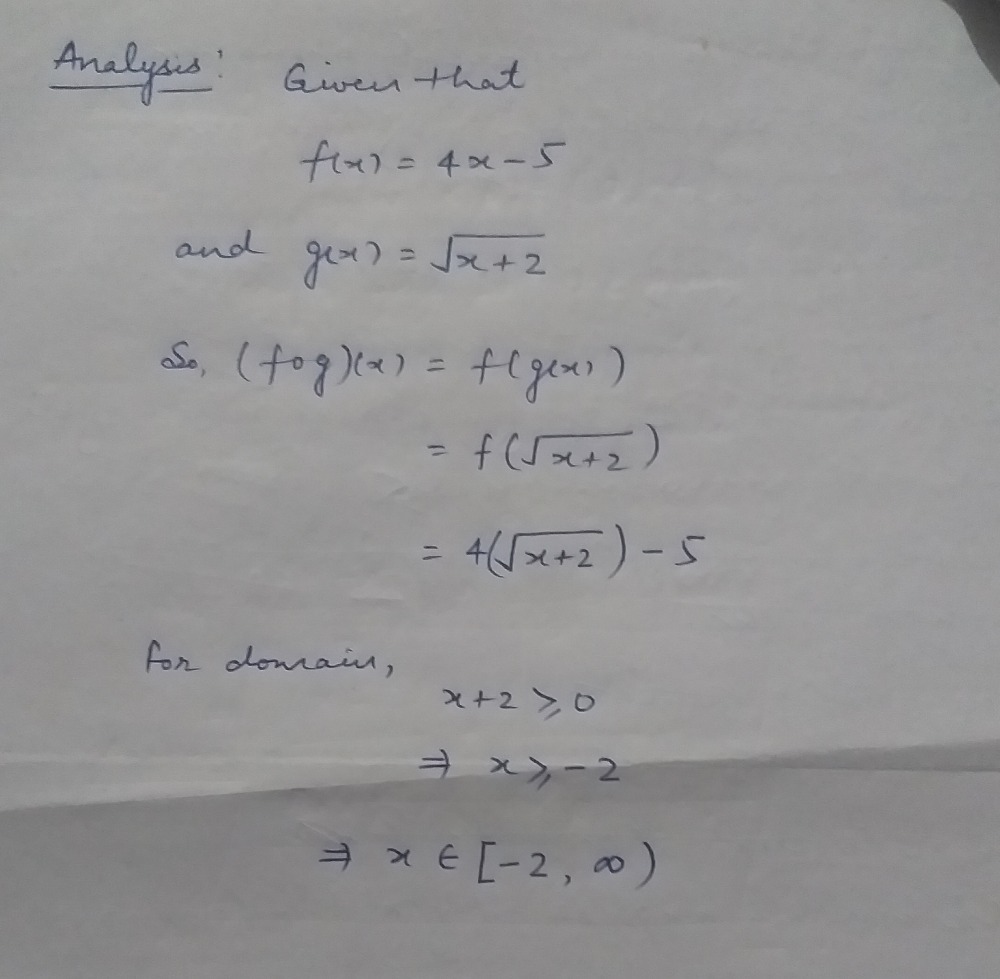 Analysis: Given that
f(x) = 4x - 5
and g(x) = √(x+2)
So, (fog)(x) = f(g(x))
= f(√(x+2))
= 4(√(x+2)) - 5
for domain,
x+2 ⩾ 0
⇒ x ⩾ -2
⇒ x ∈ [-2, ∞)